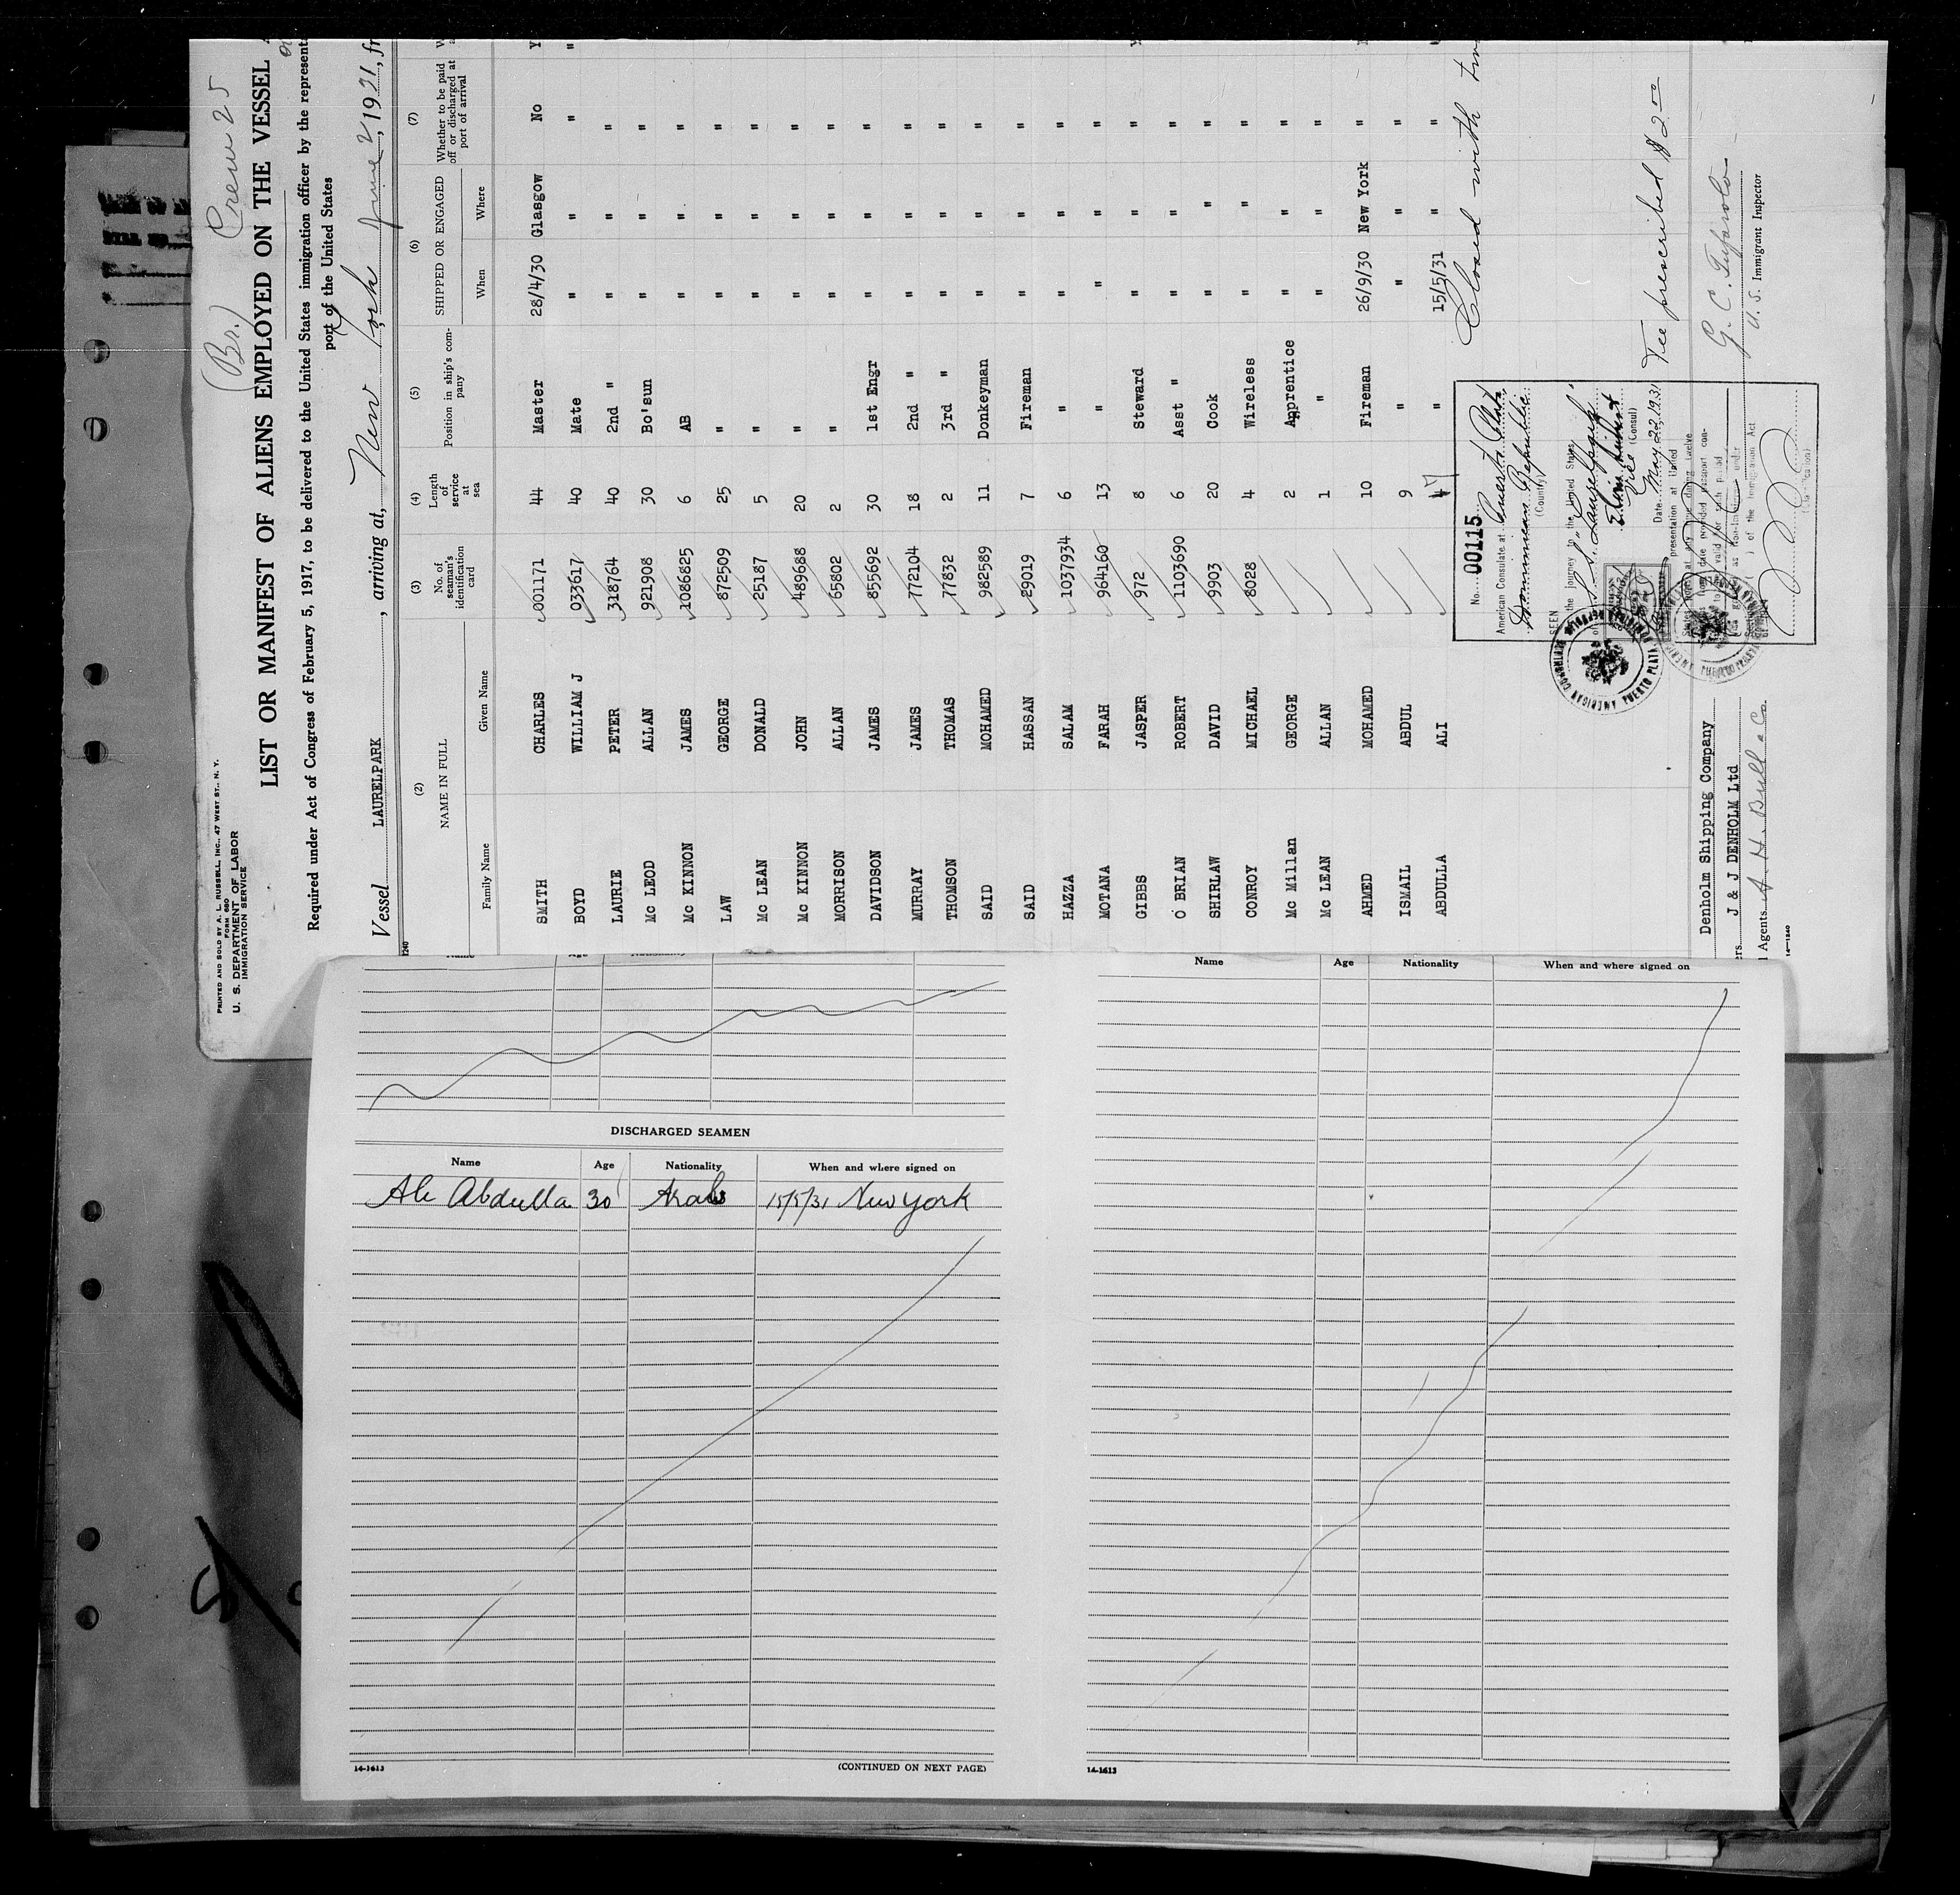 (Br.) Crew 25
PRINTED AND SOLD BY A. L. RUSSELL, INC., 47 WEST ST., N. Y.
FORM 680
U. S. DEPARTMENT OF LABOR
IMMIGRATION SERVICE
LIST OR MANIFEST OF ALIENS EMPLOYED ON THE VESSEL
Required under Act of Congress of February 5, 1917, to be delivered to the United States immigration officer by the represent
port of the United States
Vessel LAURELPARK, arriving at, New York June 2, 1931, fr
(2) (3) (4) (5) (6) (7)
NAME IN FULL No. of seaman's identification card Length of service at sea Position in ship's company SHIPPED OR ENGAGED Whether to be paid off or discharged at port of arrival
Family Name Given Name When Where
SMITH CHARLES 001171 44 Master 28/4/30 Glasgow No Y
BOYD WILLIAM J 033617 40 Mate " " " "
LAURIE PETER 318764 40 2nd " " " "
Mc LEOD ALLAN 921908 30 Bo'sun " " "
Mc KINNON JAMES 1086825 6 AB " " "
LAW GEORGE 872509 25 " " " "
Mc LEAN DONALD 25187 5 " " " "
Mc KINNON JOHN 489688 20 " " " "
MORRISON ALLAN 65802 2 " " " "
DAVIDSON JAMES 855692 30 1st Engr " " "
MURRAY JAMES 772104 18 2nd " " " "
THOMSON THOMAS 77832 2 3rd " " " "
SAID MOHAMED 982589 11 Donkeyman " " "
SAID HASSAN 29019 7 Fireman " " "
HAZZA SALAM 1037934 6 " " " "
MOTANA FARAH 964160 13 " " " "
GIBBS JASPER 972 8 Steward " " "
O'BRIAN ROBERT 1103690 6 Asst " " " "
SHIRLAW DAVID 9903 20 Cook " " "
CONROY MICHAEL 8028 4 Wireless " " "
Mc Millan GEORGE 2 Apprentice " " "
Mc LEAN ALLAN 1 " " " "
AHMED MOHAMED 10 Fireman 26/9/30 New York "
ISMAIL ABDUL 9 " " " "
ABDULLA ALI 7 " 15/5/31 " "
Closed with
No. 00115
American Consulate at Puerto Plata
Dominican Republic
(Country)
SEEN
the journey to the United States
S. S. "Laurelpark"
Vice (Consul)
Date May 22, 1931
Fee prescribed $2 00
AMERICAN CONSULAR
PUERTO PLATA
U. S. Immigrant Inspector
Denholm Shipping Company
ers J & J DENHOLM Ltd
l Agents A. H. Bull & Co.
14—1240
Name Age Nationality
DISCHARGED SEAMEN
Name Age Nationality When and where signed on
Ali Abdulla 30 Arab 15/5/31 New York
14-1613 (CONTINUED ON NEXT PAGE)
Name Age Nationality When and where signed on
14-1613